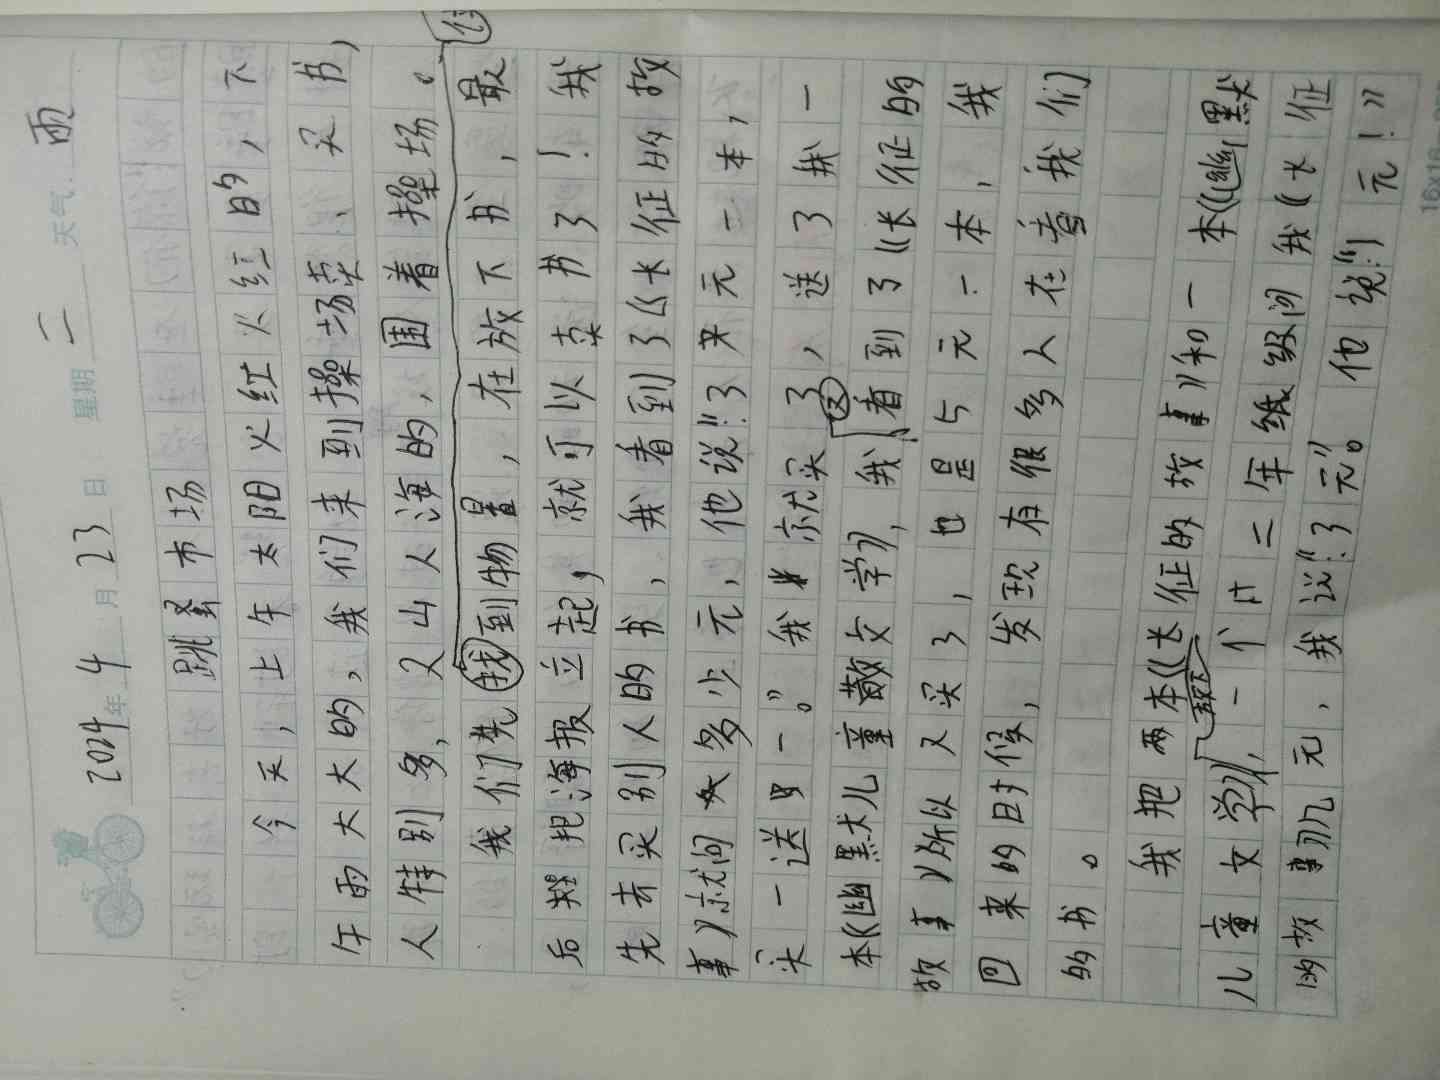 2024年4月23日 星期二 天气 雨
跳蚤市场
今天,上午太阳火红火红的,下
午雨大大的,我们来到操场卖、买书,
人特别多,又山人海的,围着操场。
我们先我到物量,在放下书,最
后把海报立起,就可以卖书了!我
先去买别人的书,我看到了《长征的故
事》就问多少元,他说:“3元一本,
买一送一。”我就买了,送了我一
本《幽默儿童散文学》,我又看到了《长征的
故事》所以又买了,也是5元一本,我
回来的时候,发现有很多人在看我们
的书。
我把两本《长征的故事》和一本《幽默
儿童文学》,一个廿二年纸级问我《长征
的故事》几元,我说:“3元”。他说:“1元!”